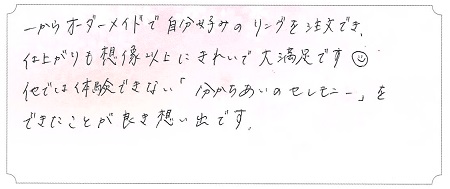 一からオーダーメイドで自分好みのリングを注文でき、
仕上がりも想像以上にきれいで大満足です☺
他では体験できない「分かちあいのセレモニー」を
できたことが良き想い出です。